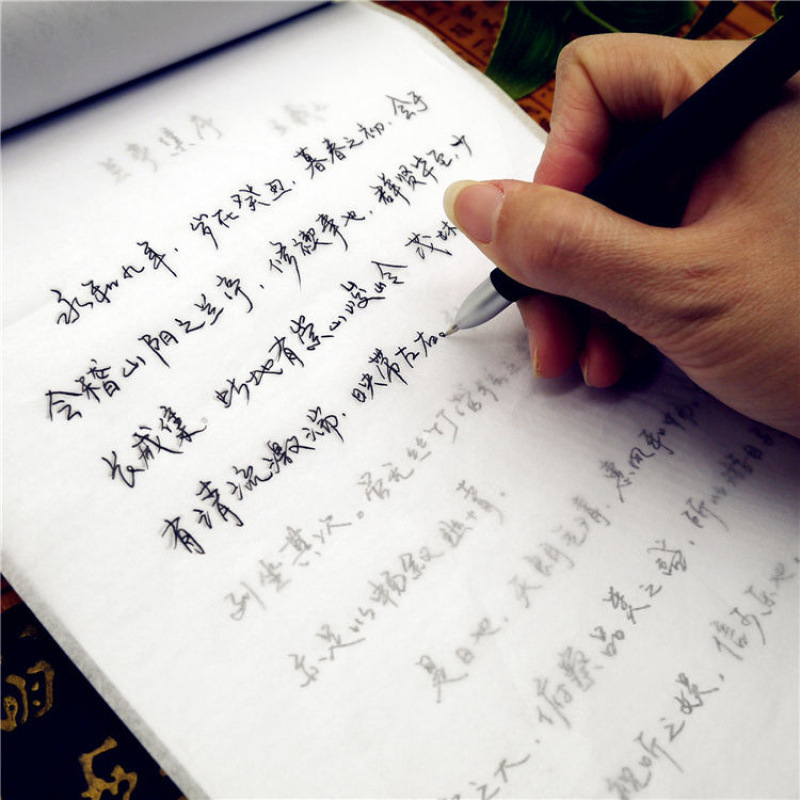 兰亭集序 王羲之
永和九年，岁在癸丑，暮春之初，会于
会稽山阴之兰亭，修禊事也，群贤毕至，少
长咸集。此地有崇山峻岭 茂林
有清流激湍，映带左右。
列坐其次。虽无丝竹管弦之
亦足以畅叙幽情。
是日也，天朗气清，惠风和畅
之大，俯察品类之盛，所以游目
视听之娱，信可乐也。